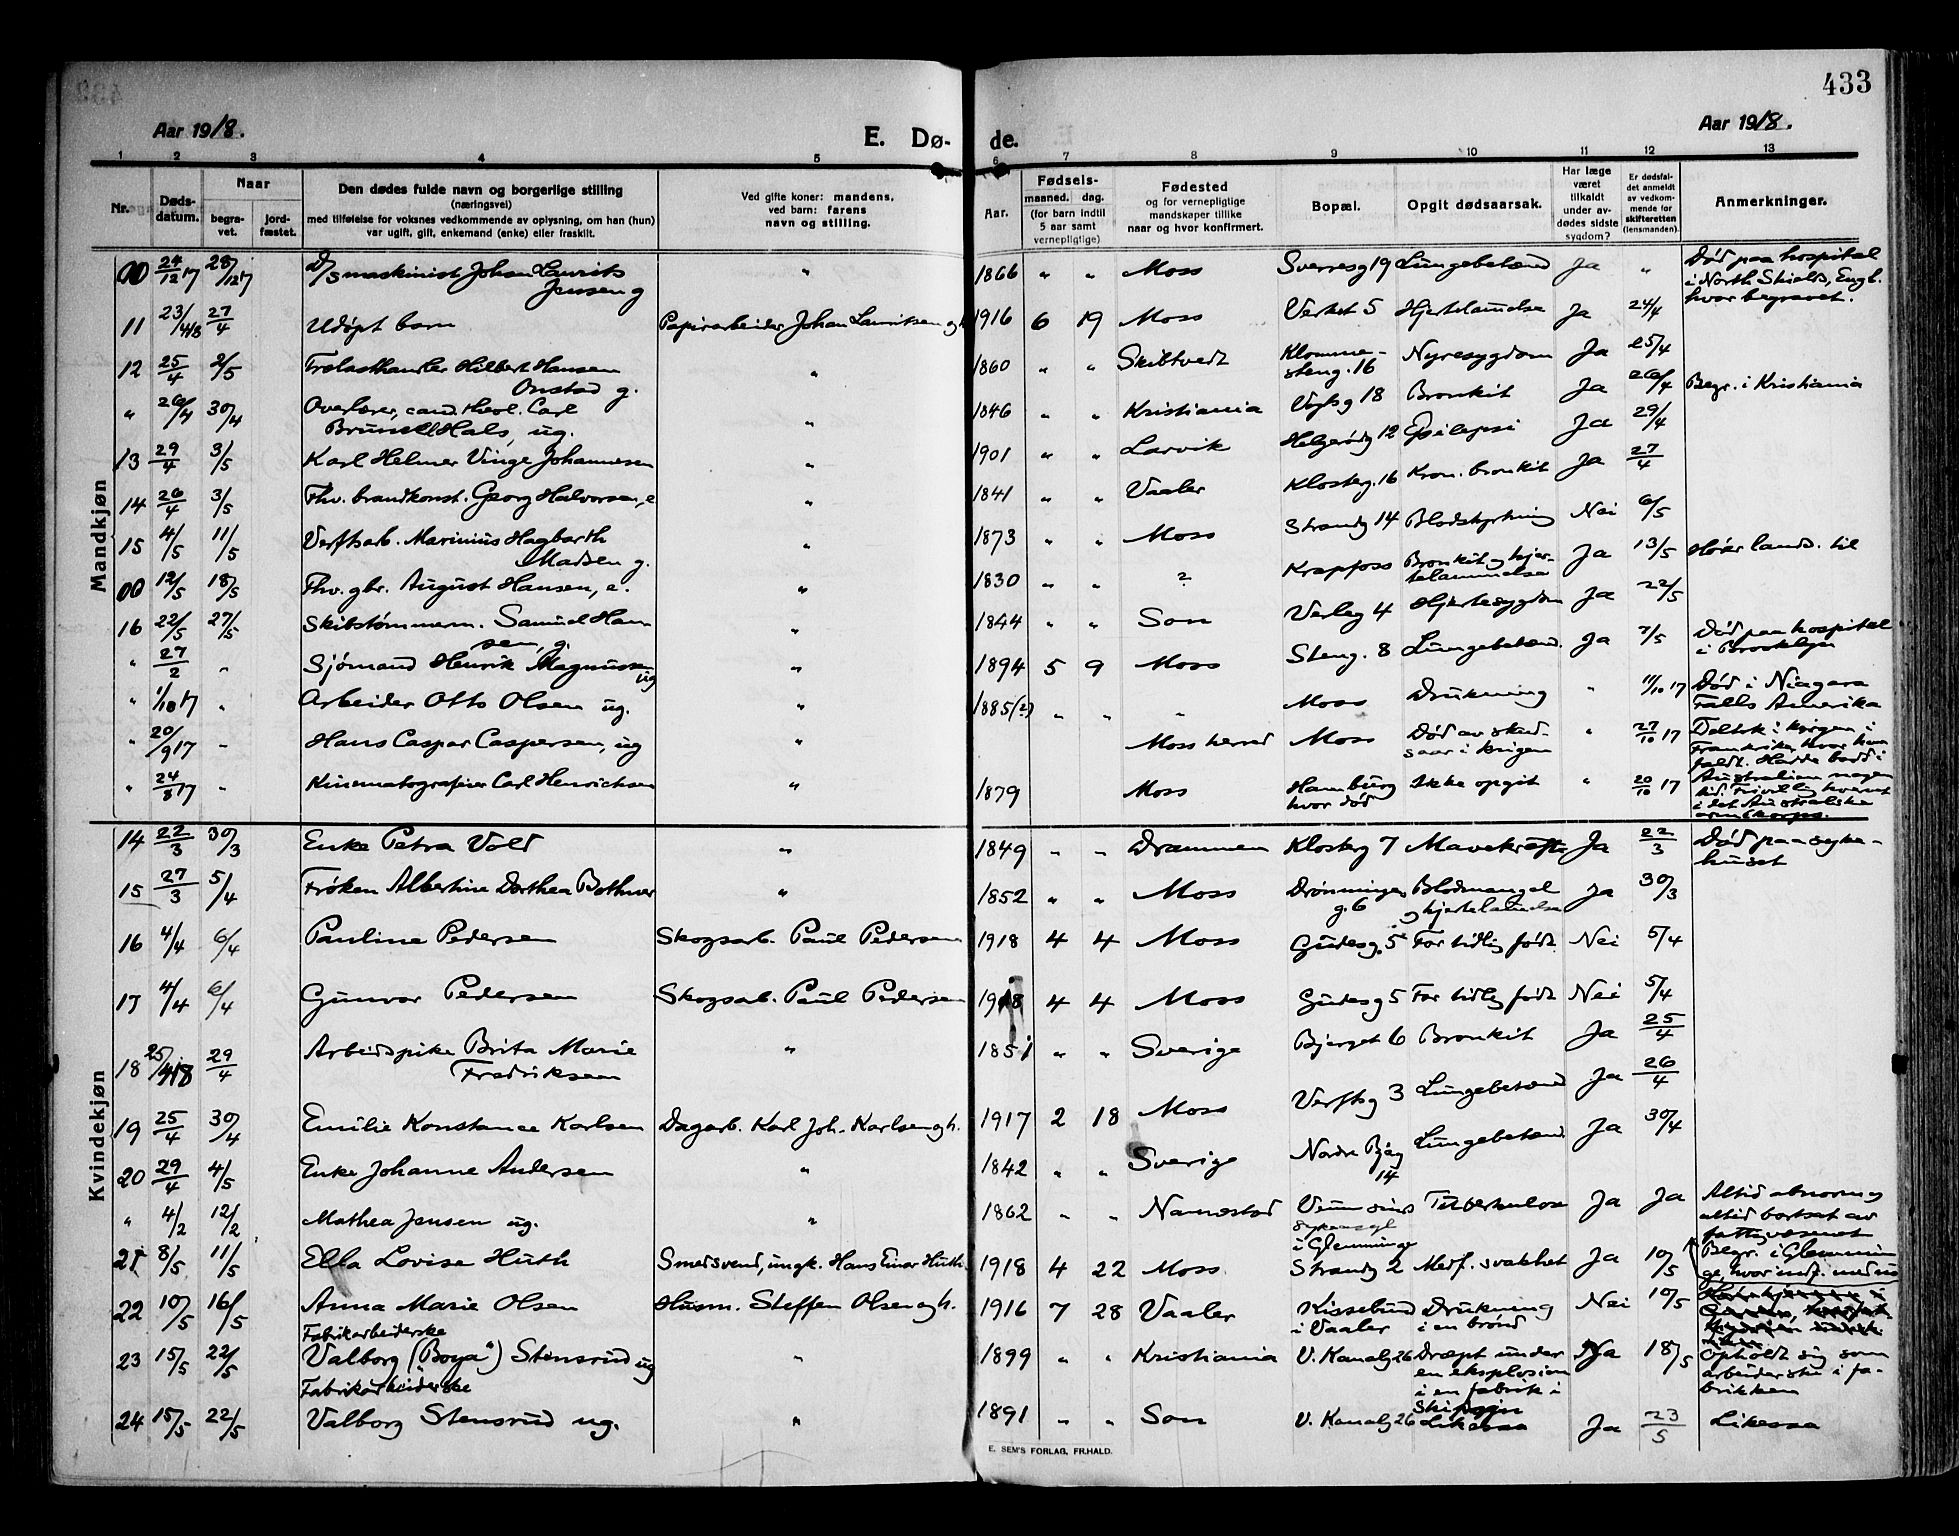 433
Aar 1918.
E. Dø-
de.
Aar 1918.
1 2 3 4 5 6 7 8 9 10 11 12 13
Nr.
Døds-
datum.
Naar
begra-
vet.
jord-
fæstet.
Den dødes fulde navn og borgerlige stilling
(næringsvei)
med tilføielse for voksnes vedkommende av oplysning, om han (hun)
var ugift, gift, enkemand (enke) eller fraskilt.
Ved gifte koner: mandens,
ved barn: farens
navn og stilling.
Aar.
Fødsels-
maaned. dag.
(for barn indtil
5 aar samt
vernepligtige)
Fødested
og for vernepligtige
mandskaper tillike
naar og hvor konfirmert.
Bopæl.
Opgit dødsaarsak.
Har læge
været
tilkaldt
under av-
dødes sidste
sygdom?
Er dødsfal-
det anmeldt
av vedkom-
mende for
skifteretten
(lensmanden).
Anmerkninger.
Mandkjøn
00 24/12 17 28/12 17 D/S maskinist Johan Laurits Jensen g " 1866 " " Moss Sverresg 19 Lungebetænd Ja " Død paa hospital i North Shields, Engl. hvor begravet.
11 23/4 18 27/4 Udøpt barn Papirarbeider Johan Lauritsen og h 1916 6 19 Moss Verket 5 Hjertelamelse Ja 24/4
12 25/4 2/5 Trælasthandler Hilbert Hansen Onstad g. " 1860 " " Skiptvedt Klommesteng. 16 Nyresygdom Ja 25/4
" 26/4 30/4 Overlærer, cand. theol. Carl Brunell Hals, ug. " 1846 " " Kristiania Vogtsg 18 Bronkit Ja 26/4 Begr. i Kristiania
13 29/4 3/5 Karl Helmer Vinge Johannesen " 1901 " " Larvik Helgerødg 12 Epilepsi Ja 29/4
14 26/4 3/5 Fhv. brandkonst. Georg Halvorsen, e " 1841 " " Vaaler Klosterg. 16 Kron. bronkit Ja 27/4
15 4/5 11/5 Verftsarb. Marinius Hagbarth Madsen g. " 1873 " " Moss Strandg 14 Blodstyrtning Nei 6/5
00 12/5 18/5 Fhv. gbr. August Hansen, e. " 1830 " " ? Krapfoss Bronkit og hjertelammelse Ja 13/5 Hører lands. til
16 22/5 27/5 Skibstømmerm. Samuel Hansen, g. " 1844 " " Son Verleg 4 Hjertesygdom Ja 22/5
" 27/2 " Sjømand Henrik Magnussen ug " 1894 5 9 Moss Steng. 8 Lungebetænd. Ja 7/5 Død paa hospital i Brooklyn
" 1/10 17 " Arbeider Otto Olsen ug. " 1885(?) " " " Moss Drukning " 11/10 17 Død i Niagara Falls Amerika
" 20/9 17 " Hans Caspar Caspersen, ug " Moss herred Moss Død av skudsaar i krigen " 27/10 17 Deltok i krigen i Frankrike hvor han faldt. Hadde bodd i Australien nogen tid. Frivillig hvervet i det Australske armékorps.
" 24/8 17 " Kinematografeier Carl Henrichsen " 1879 Moss Hamburg hvor død Ikke opgit " 20/10 17
Kvindekjøn
14 22/3 30/3 Enke Petra Vold " 1849 " " Drammen Klosterg 7 Mavekræft Ja 22/3 Død paa sykehuset
15 27/3 5/4 Frøken Albertine Dorthea Bothner " 1852 " " Moss Dronningensg. 6 Blodmangel og hjertelamelse Ja 30/3
16 4/4 6/4 Pauline Pedersen Skogsarb. Paul Pedersen 1918 4 4 Moss Gudesg. 5 For tidlig født. Nei 5/4
17 4/4 6/4 Gunvor Pedersen Skogsarb. Paul Pedersen 1918 4 4 Moss Gudesg 5 For tidlig født Nei 5/4
18 25/4 18 29/4 Arbeidspike Brita Marie Fredriksen " 1851 " " Sverige Bjerget 6 Bronkit Ja 25/4
19 25/4 30/4 Emilie Konstance Karlsen Dagarb. Karl Joh. Karlsen og h. 1917 2 18 Moss Verftsg 3 Lungebetænd Ja 26/4
20 29/4 4/5 Enke Johanne Andersen " 1842 " " Sverige Nordre Bjerg 14 Lungebetænd Ja 30/4
" 4/2 12/2 Mathea Jensen ug. " 1862 " " Namsstad i Glemminge Tuberkulose Ja Ja Altid abnorm og altid bortsat av fattigvæsenet Begr. i Glemminge, hvor indf. med no
21 8/5 11/5 Ella Lovise Huth Smedsvend, ungk. Hans Einar Huth. 1918 4 22 Moss Strandg 2 Medf. svakhet Ja 10/5
22 10/5 16/5 Anna Marie Olsen Husm. Steffen Olsen og h. 1916 7 28 Vaaler Kisselund i Vaaler Drukning i en brønd Nei 10/5
23 15/5 22/5 Fabrikarbeiderske Valborg ("Boya") Stensrud ug " 1899 " " Kristiania V. Kanalg 26 Dræpt under en eksplosion i en fabrik i Skipsjn Ja 18/5 opholdt sig som arbeiderske i fabrikken
24 15/5 22/5 Fabrikarbeiderske Valborg Stensrud ug. " 1891 " " Son V. Kanalg 26 Likessa Ja 23/5 Likessa
E. SEM'S FORLAG, FR.HALD.